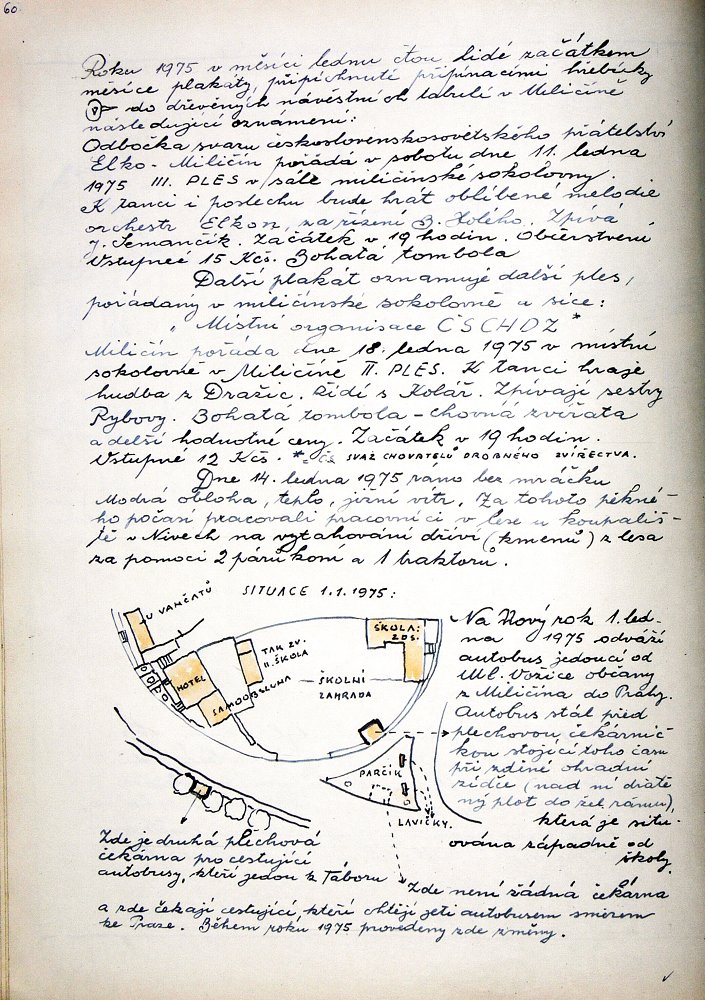 60.
Roku 1975 v měsíci lednu čtou lidé začátkem
měsíce plakáty, připíchnuté připínacími hřebíčky
do dřevěných návěstních tabulí v Miličíně
následující oznámení:
Odbočka svazu československosovětského přátelství
Elko - Miličín pořádá v sobotu dne 11. ledna
1975 III. PLES v sále miličínské sokolovny.
K tanci i poslechu bude hrát oblíbené melodie
orchestr Elkon, za řízení B. Holého. Zpívá
J. Semančik. Začátek v 19 hodin. Občerstvení
Vstupneé 15 Kčs. Bohatá tombola
Další plakát oznamuje další ples,
pořádaný v miličínské sokolovně a sice:
„Místní organisace ČSCHDZ *
Miličín pořádá dne 18. ledna 1975 v místní
sokolovně v Miličíně II. PLES. K tanci hraje
hudba z Dražic. Řídí s Kolář. Zpívají sestry
Rybovy. Bohatá tombola - chovná zvířata
a delší hodnotné ceny. Začátek v 19 hodin.
Vstupné 12 Kčs. * SVAZ CHOVATELŮ DROBNÉHO ZVÍŘECTVA.
Dne 14. ledna 1975 ráno bez mráčku
modrá obloha, teplo, jižní vítr. Za tohoto pěkné-
ho počasí pracovali pracovníci v lese u koupališ-
tě v Nivech na vytahování dříví (kmenů) z lesa
za pomoci 2 párů koní a 1 traktorů.
SITUACE 1.1.1975:
U VANČATŮ
HOTEL
SAMOOBSLUHA
TAK ZV.
II. ŠKOLA
ŠKOLNÍ
ZAHRADA
ŠKOLA:
ZDŠ.
PARČÍK
LAVIČKY.
Na Nový rok 1. led-
na 1975 odváží
autobus jedoucí od
Ml. Vožice občany
z Miličína do Prahy.
Autobus stál před
plechovou čekárnič-
kou stojící toho času
při zděné ohradní
zídce (nad ní drátě-
ný plot do žel. rámu),
která je situ-
ována západně od
školy.
Zde je druhá plechová
čekárna pro cestující
autobusy, kteří jedou z Tábora
Zde není žádná čekárna
a zde čekají cestující, kteří chtějí jeti autobusem směrem
ke Praze. Během roku 1975 provedeny zde změny.